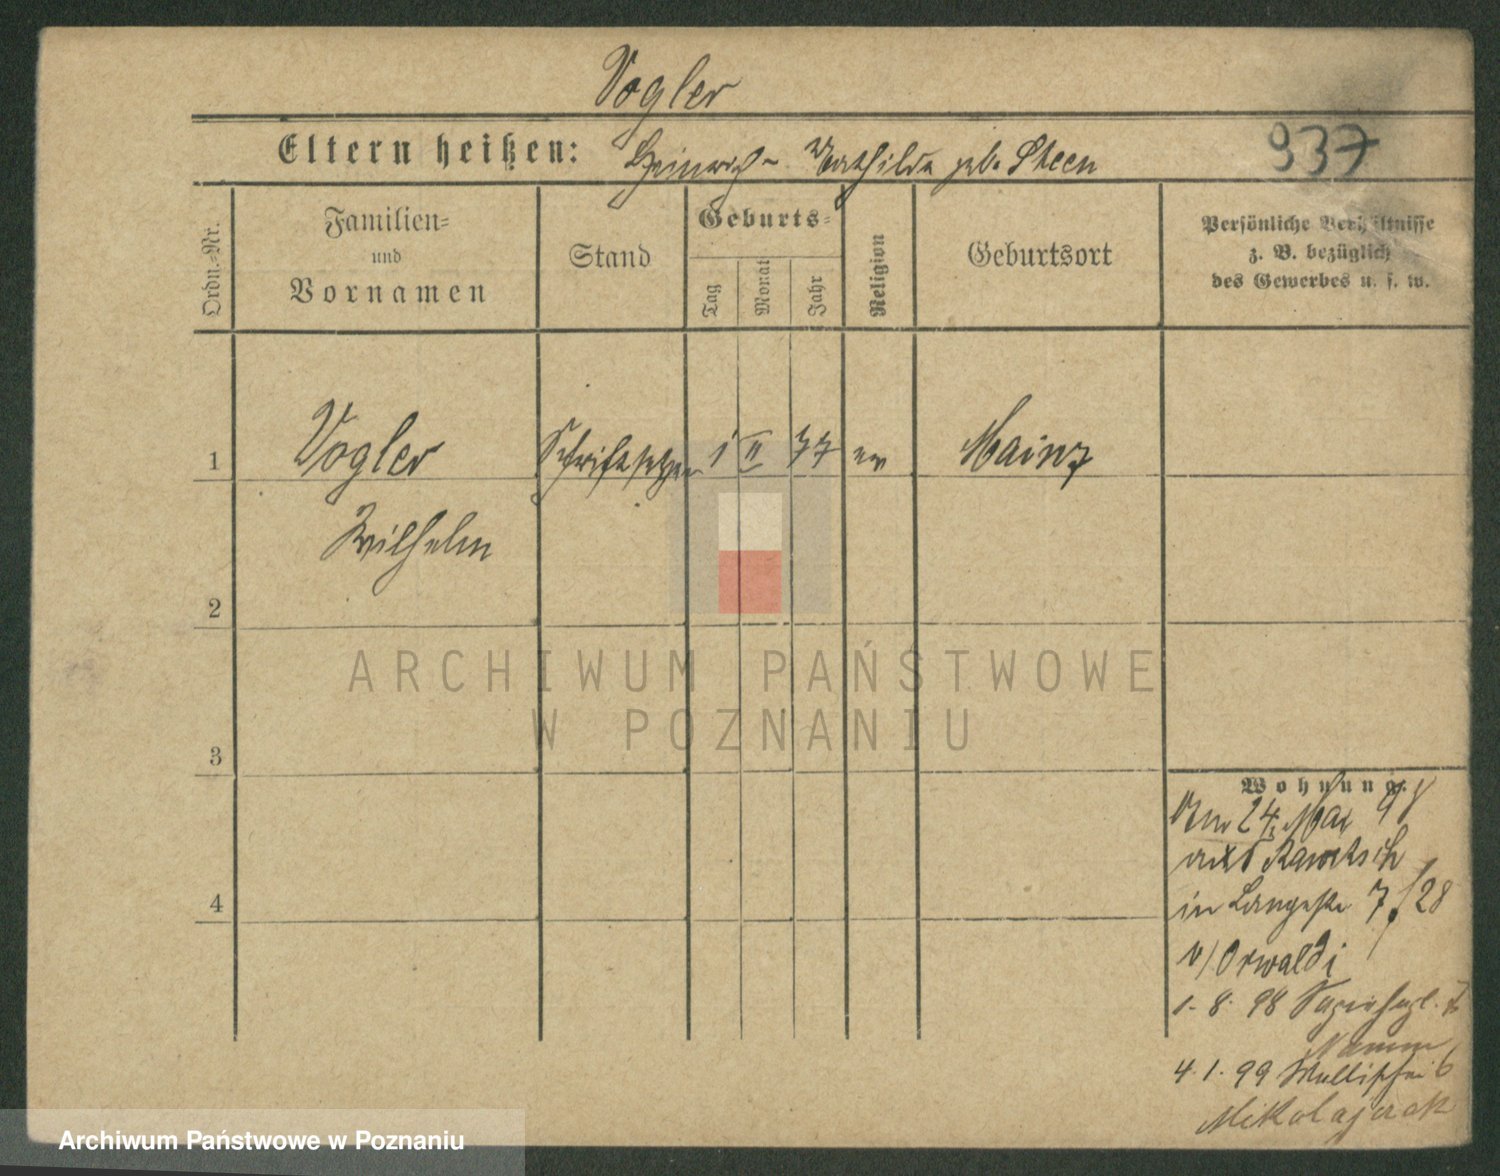 Vogler
Eltern heißen: Heinrich – Mathilde geb. Steen
937
Ordn.-Nr.
Familien-
und
Vornamen
Stand
Geburts-
Tag
Monat
Jahr
Religion
Geburtsort
Persönliche Verhältnisse
z. B. bezüglich
des Gewerbes u. s. w.
1 Vogler Schriftsetzer 1 II 77 ev Mainz
Wilhelm
2
3
4
Wohnung.
Am 24. Mai 98
aus Rawitsch
in Langestr 7 / 28
v/
1. 8. 98
4. 1. 99 6
Mikolajczak
ARCHIWUM PAŃSTWOWE
W POZNANIU
Archiwum Państwowe w Poznaniu